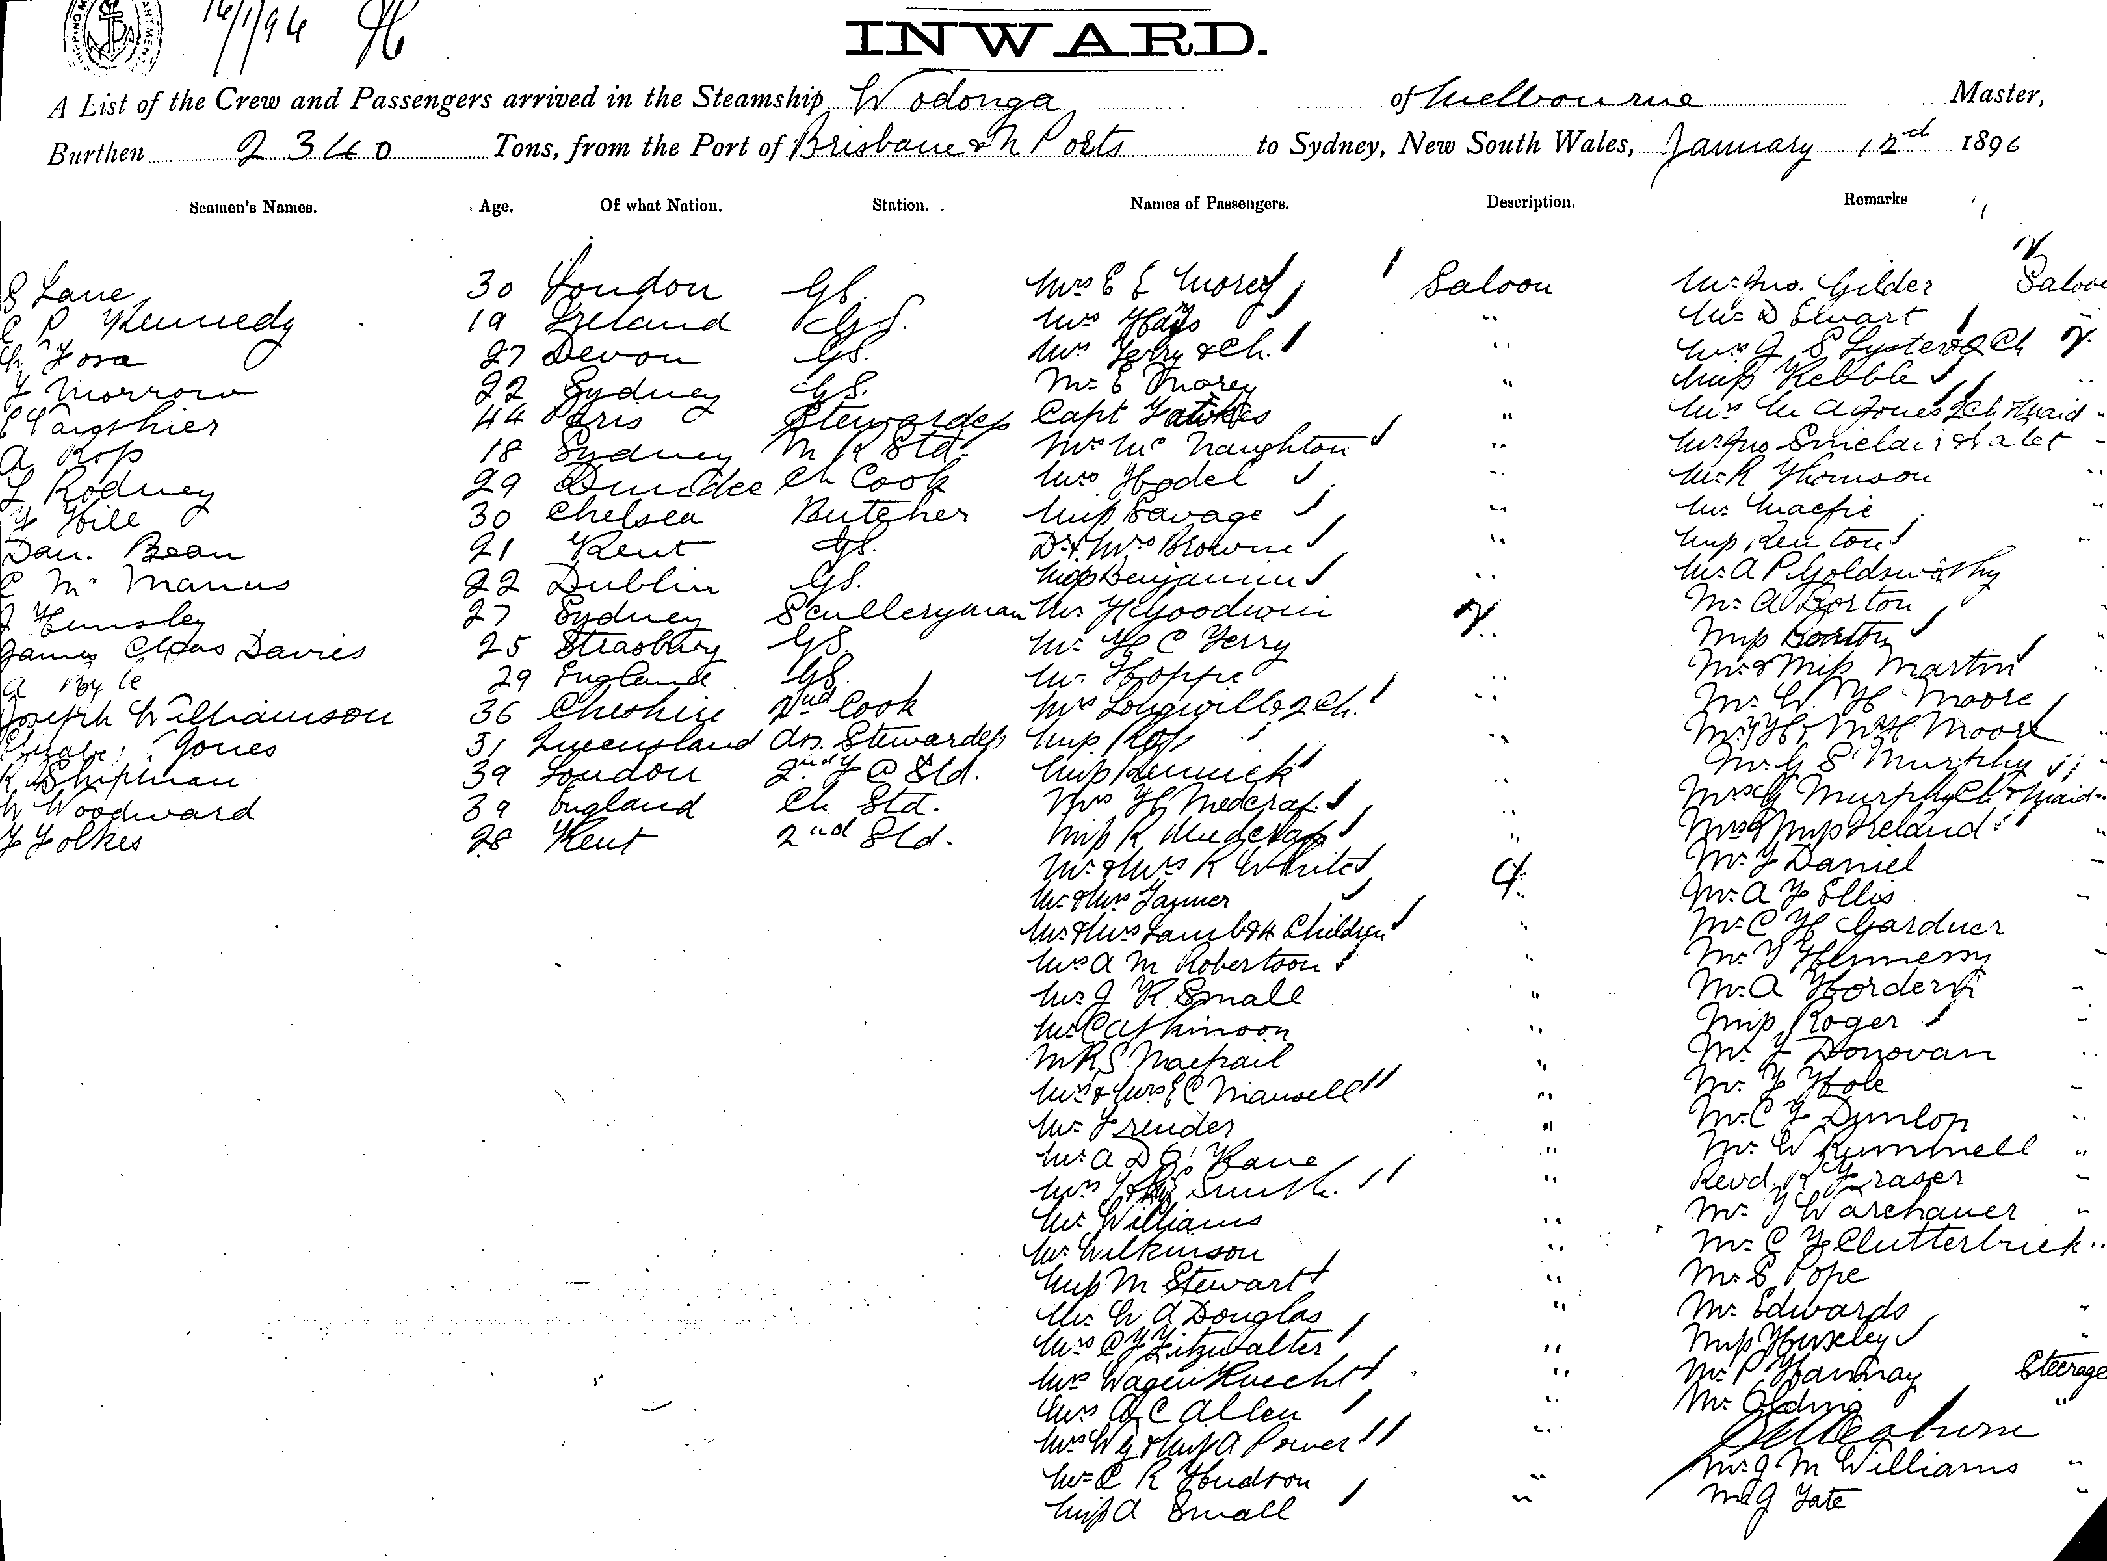 16/1/96
INWARD.
A List of the Crew and Passengers arrived in the Steamship Wodonga of Melbourne Master,
Burthen 2340 Tons, from the Port of Brisbane & N Ports to Sydney, New South Wales, January 12nd 1896
Seamen's Names. Age. Of what Nation. Station. Names of Passengers. Description. Remarks
S Lane 30 London GS. Mrs E E Morey Saloon Mr Jno. Gilder Saloon
P Kennedy 19 Ireland GS. Mrs Hays " Mr D "
27 Devon GS. Mrs Terry & Ch. " Mrs J S Lyster & 2 Ch
Morrow 22 Sydney GS. Mr E Morey " Miss Kebble "
44 Paris Stewardess Capt " Mrs M A Jones 2 Ch & Maid "
A Ross 18 Sydney M R Std. Mrs Mc Naughton " Mr Jno Sinclair & valet "
Rodney 29 Dundee Ch Cook Mrs Hodel " Mr R Thomson "
Hill 30 Chelsea Butcher Miss Savage " Mr Macfie "
Dan. Bean 21 Kent GS. Dr & Mrs Browne " Miss Renton "
C Mc Manus 22 Dublin GS. Miss Benjamin " Mr A P Goldsworthy
J Hemsley 27 Sydney Sculleryman Mr H Goodwin " Mr A Borton
James Chas Davies 25 Strasburg GS. Mr H C Terry Miss Borton "
A 29 England GS. Mr Hoppe " Mr & Miss Martin "
Joseph Williamson 36 Cheshire 2nd Cook Mrs Longwill & 2 Ch. " Mr W. H Moore "
Jones 31 Queensland Asn. Stewardess Miss " Moore
R Shipman 39 London 2nd Std. Miss Renwick Mr G S Murphy "
W Woodward 39 England Ch Std. Mrs H Medcraf " Mrs G Murphy Ch & Maid "
Folkes 28 Kent 2nd Std. Miss R Medcraf " Mrs & Miss Ireland "
Mr & Mrs R White Mr F Daniel "
Mr & Mrs Tanner Mr A F Ellis "
Mr & Mrs Lamb & 4 Children " Mr C H Gardner
Mrs A M Robertson " Mr
Mr J R Small " Mr A Hordern "
Mr C Atkinson " Miss Roger "
Mr R S Macphail " Mr Donovan "
Mr & Mrs E C Maxwell " Mr F Hole "
Mr Trender " Mr C Dunlop "
Mr A D Kane " Mr W Rummell "
Mrs Smith. " Revd R Fraser "
Mr Williams " Mr Warchauer "
Mr Wilkinson " Mr C F Clutterbuck "
Miss M Stewart " Mr S Pope
Mr W A Douglas " Mr Edwards "
Mrs C F Fitzwalter " Miss Huxley "
Mrs WagenKnecht " Mr P Hannay Steerage
Mrs A C Allen " Mr Olding "
Mrs W G & Miss A Power "
Mr C R Hudson " Mr J M Williams "
Miss A Small " Mr J Tate "